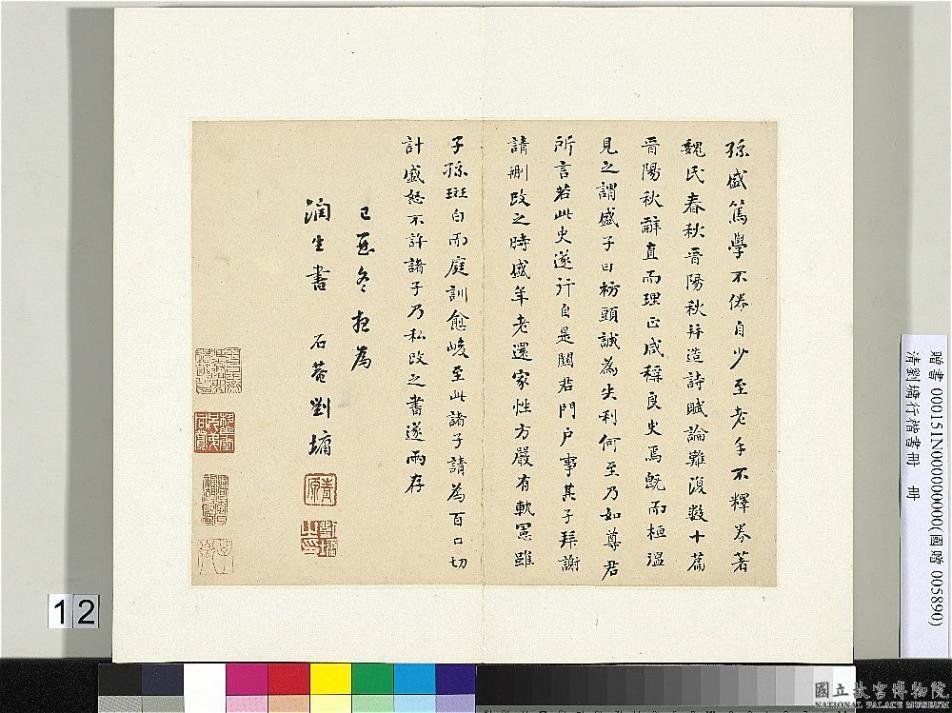 孫盛篤學不倦自少至老手不釋卷著
魏氏春秋晉陽秋并造詩賦論難復數十篇
晉陽秋辭直而理正咸稱良史焉既而桓溫
見之謂盛子曰枋頭誠為失利何至乃如尊君
所言若此史遂行自是關君門戶事其子拜謝
請刪改之時盛年老還家性方嚴有軌憲雖
子孫斑白而庭訓愈峻至此諸子請為百口切
計盛怒不許諸子乃私改之書遂兩存
己酉冬夜為
潤生書
石菴劉墉
贈書 000151N000000000(國贈 005890)
清劉墉行楷書冊 冊
12
國立故宮博物院
NATIONAL PALACE MUSEUM